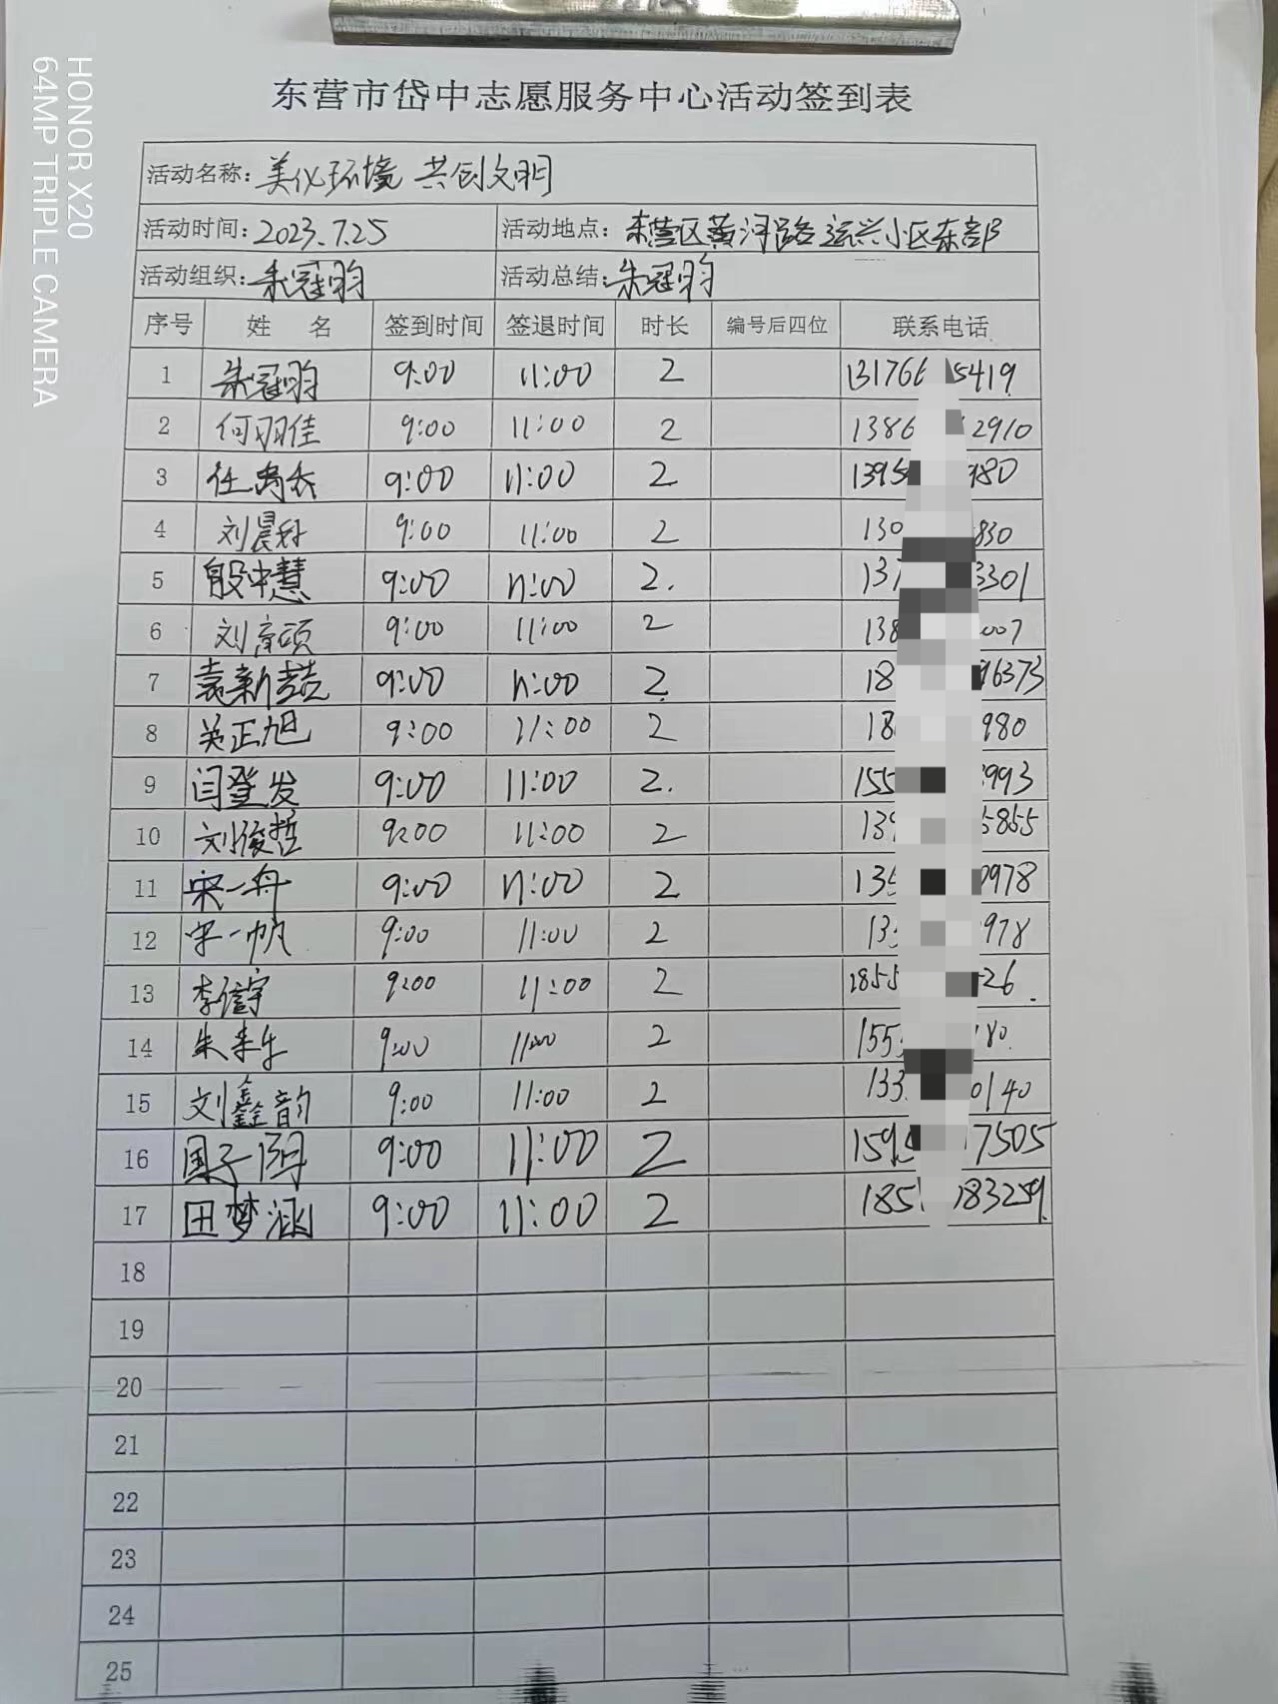 HONOR X20
64MP TRIPLE CAMERA
东营市岱中志愿服务中心活动签到表
活动名称: 美化环境 共创文明
活动时间: 2023.7.25 活动地点: 东营区黄河路运兴小区东部
活动组织: 朱冠昀 活动总结: 朱冠昀
序号 姓 名 签到时间 签退时间 时长 编号后四位 联系电话
1 朱冠昀 9:00 11:00 2 13176 5419
2 何羽佳 9:00 11:00 2 138 2910
3 任 9:00 11:00 2 139 980
4 刘晨 9:00 11:00 2 130 830
5 殷中慧 9:00 11:00 2. 137 3301
6 刘 9:00 11:00 2 138 007
7 袁新喆 9:00 11:00 2 18 6373
8 吴正旭 9:00 11:00 2 18 980
9 闫登发 9:00 11:00 2. 155 993
10 刘俊哲 9:00 11:00 2 139 5855
11 宋一舟 9:00 11:00 2 135 0978
12 宋一帆 9:00 11:00 2 13 978
13 李信宇 9:00 11:00 2 1855 26
14 朱 9:00 11:00 2 155 80
15 刘鑫韵 9:00 11:00 2 133 0140
16 国子 9:00 11:00 2 159 7505
17 田梦涵 9:00 11:00 2 185 83259
18
19
20
21
22
23
24
25